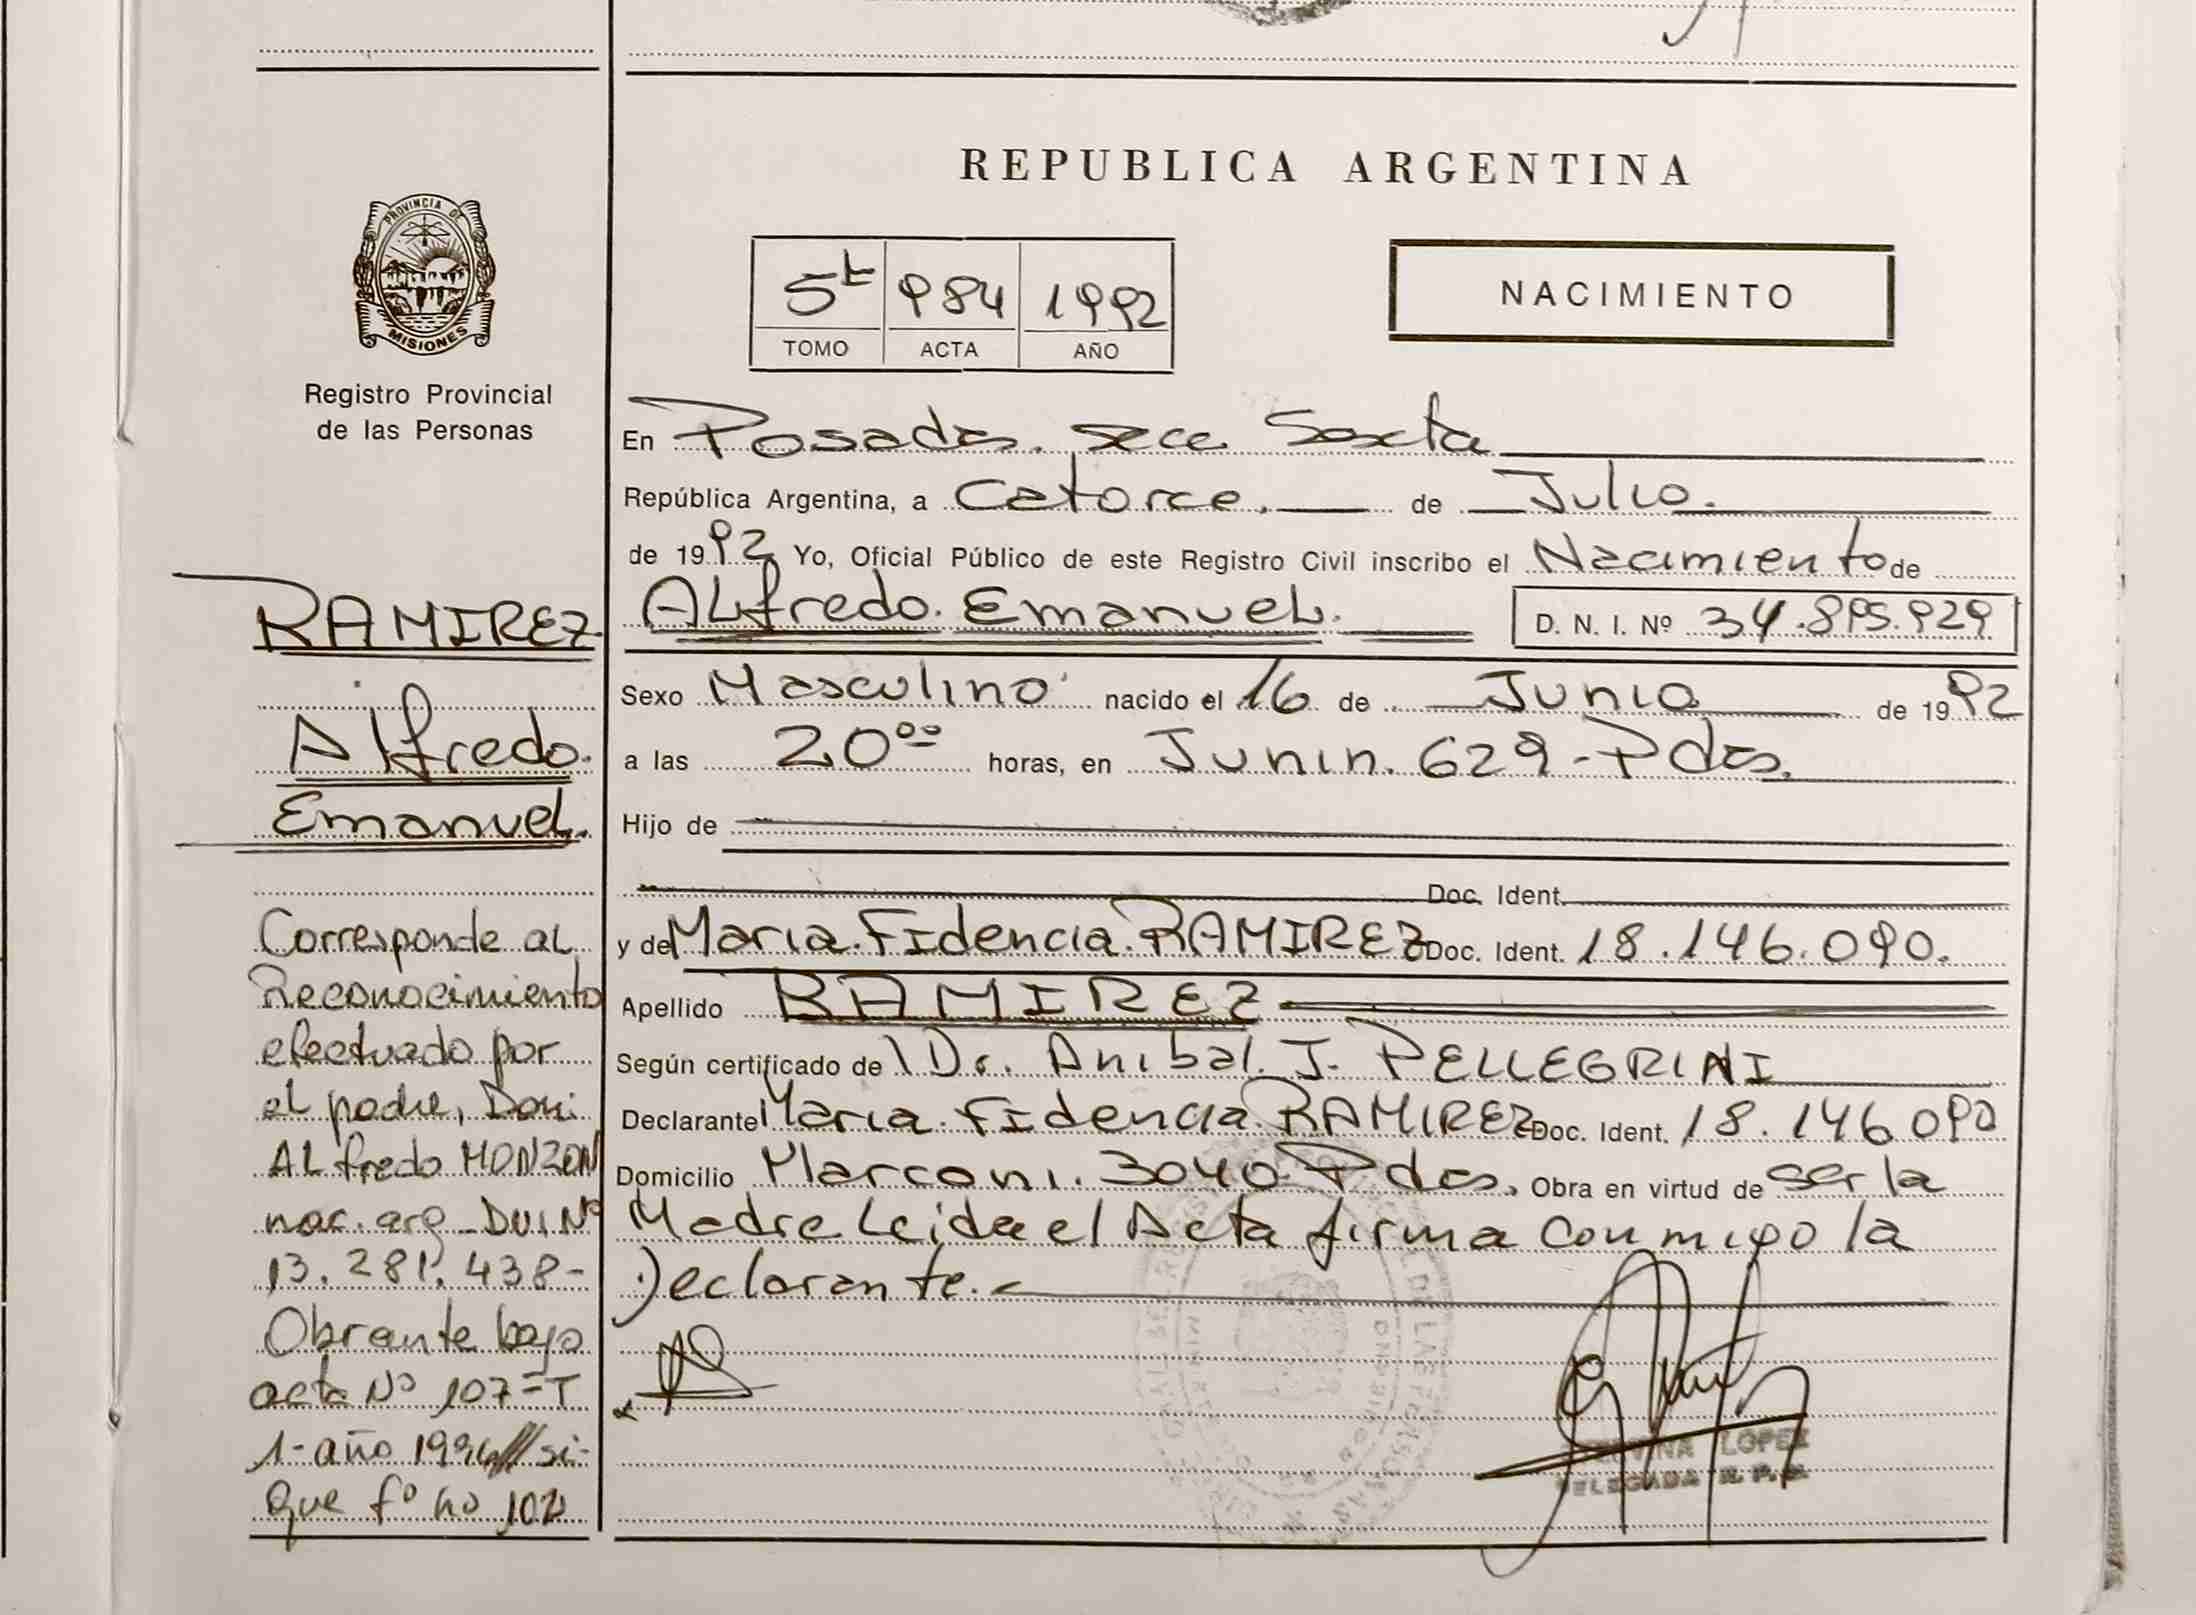 REPUBLICA ARGENTINA
PROVINCIA DE
MISIONES
Registro Provincial
de las Personas
5t 984 1992
TOMO ACTA AÑO
NACIMIENTO
En Posadas. secc Sexta
República Argentina, a Catorce. de Julio.
de 1992 Yo, Oficial Público de este Registro Civil inscribo el Nacimiento de
ALfredo. Emanuel. D. N. I. Nº 34.895.929
Sexo Masculino nacido el 16 de Junio de 1992
a las 20 00 horas, en Junin. 629 - Pdas.
Hijo de
Doc. Ident.
y de Maria. Fidencia. RAMIREZ Doc. Ident. 18.146.090.
Apellido RAMIREZ
Según certificado de Dr. Anibal. J. PELLEGRINI
Declarante Maria. Fidencia. RAMIREZ Doc. Ident. 18.146 090
Domicilio Marconi. 3040 Pdas. Obra en virtud de ser la
Madre Leida el Acta firma conmigo la
Declarante.
LOPEZ
DELEGADA R. P. P.
RAMIREZ
Alfredo.
Emanuel.
Corresponde al
Reconocimiento
efectuado por
el padre, Don:
ALfredo MONZON
nac. arg. DNI Nº
13.281.438-
Obrante bajo
acta Nº 107-T
1- año 1996 si-
gue fº no 102